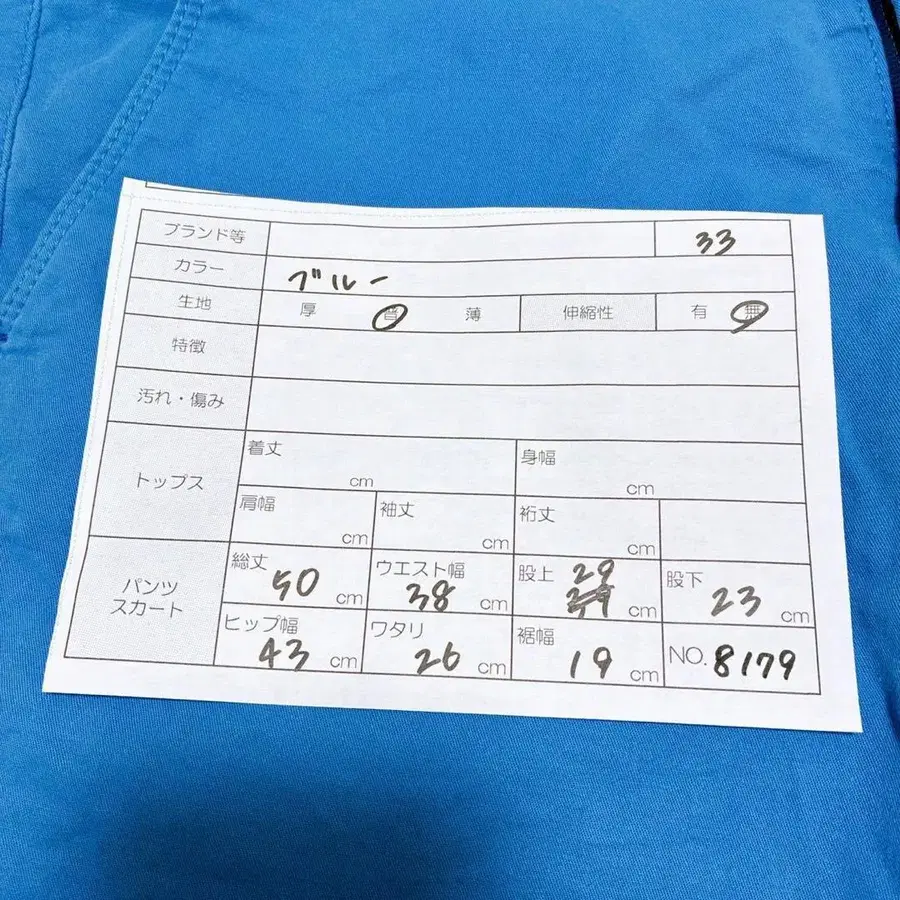 ブランド等 33
カラー ブルー
生地 厚 普 薄 伸縮性 有 無
特徴
汚れ・傷み
トップス 着丈 cm 身幅 cm
肩幅 cm 袖丈 cm 裄丈 cm
パンツ スカート 総丈 50 cm ウエスト幅 38 cm 股上 29 cm 股下 23 cm
ヒップ幅 43 cm ワタリ 26 cm 裾幅 19 cm NO. 8179